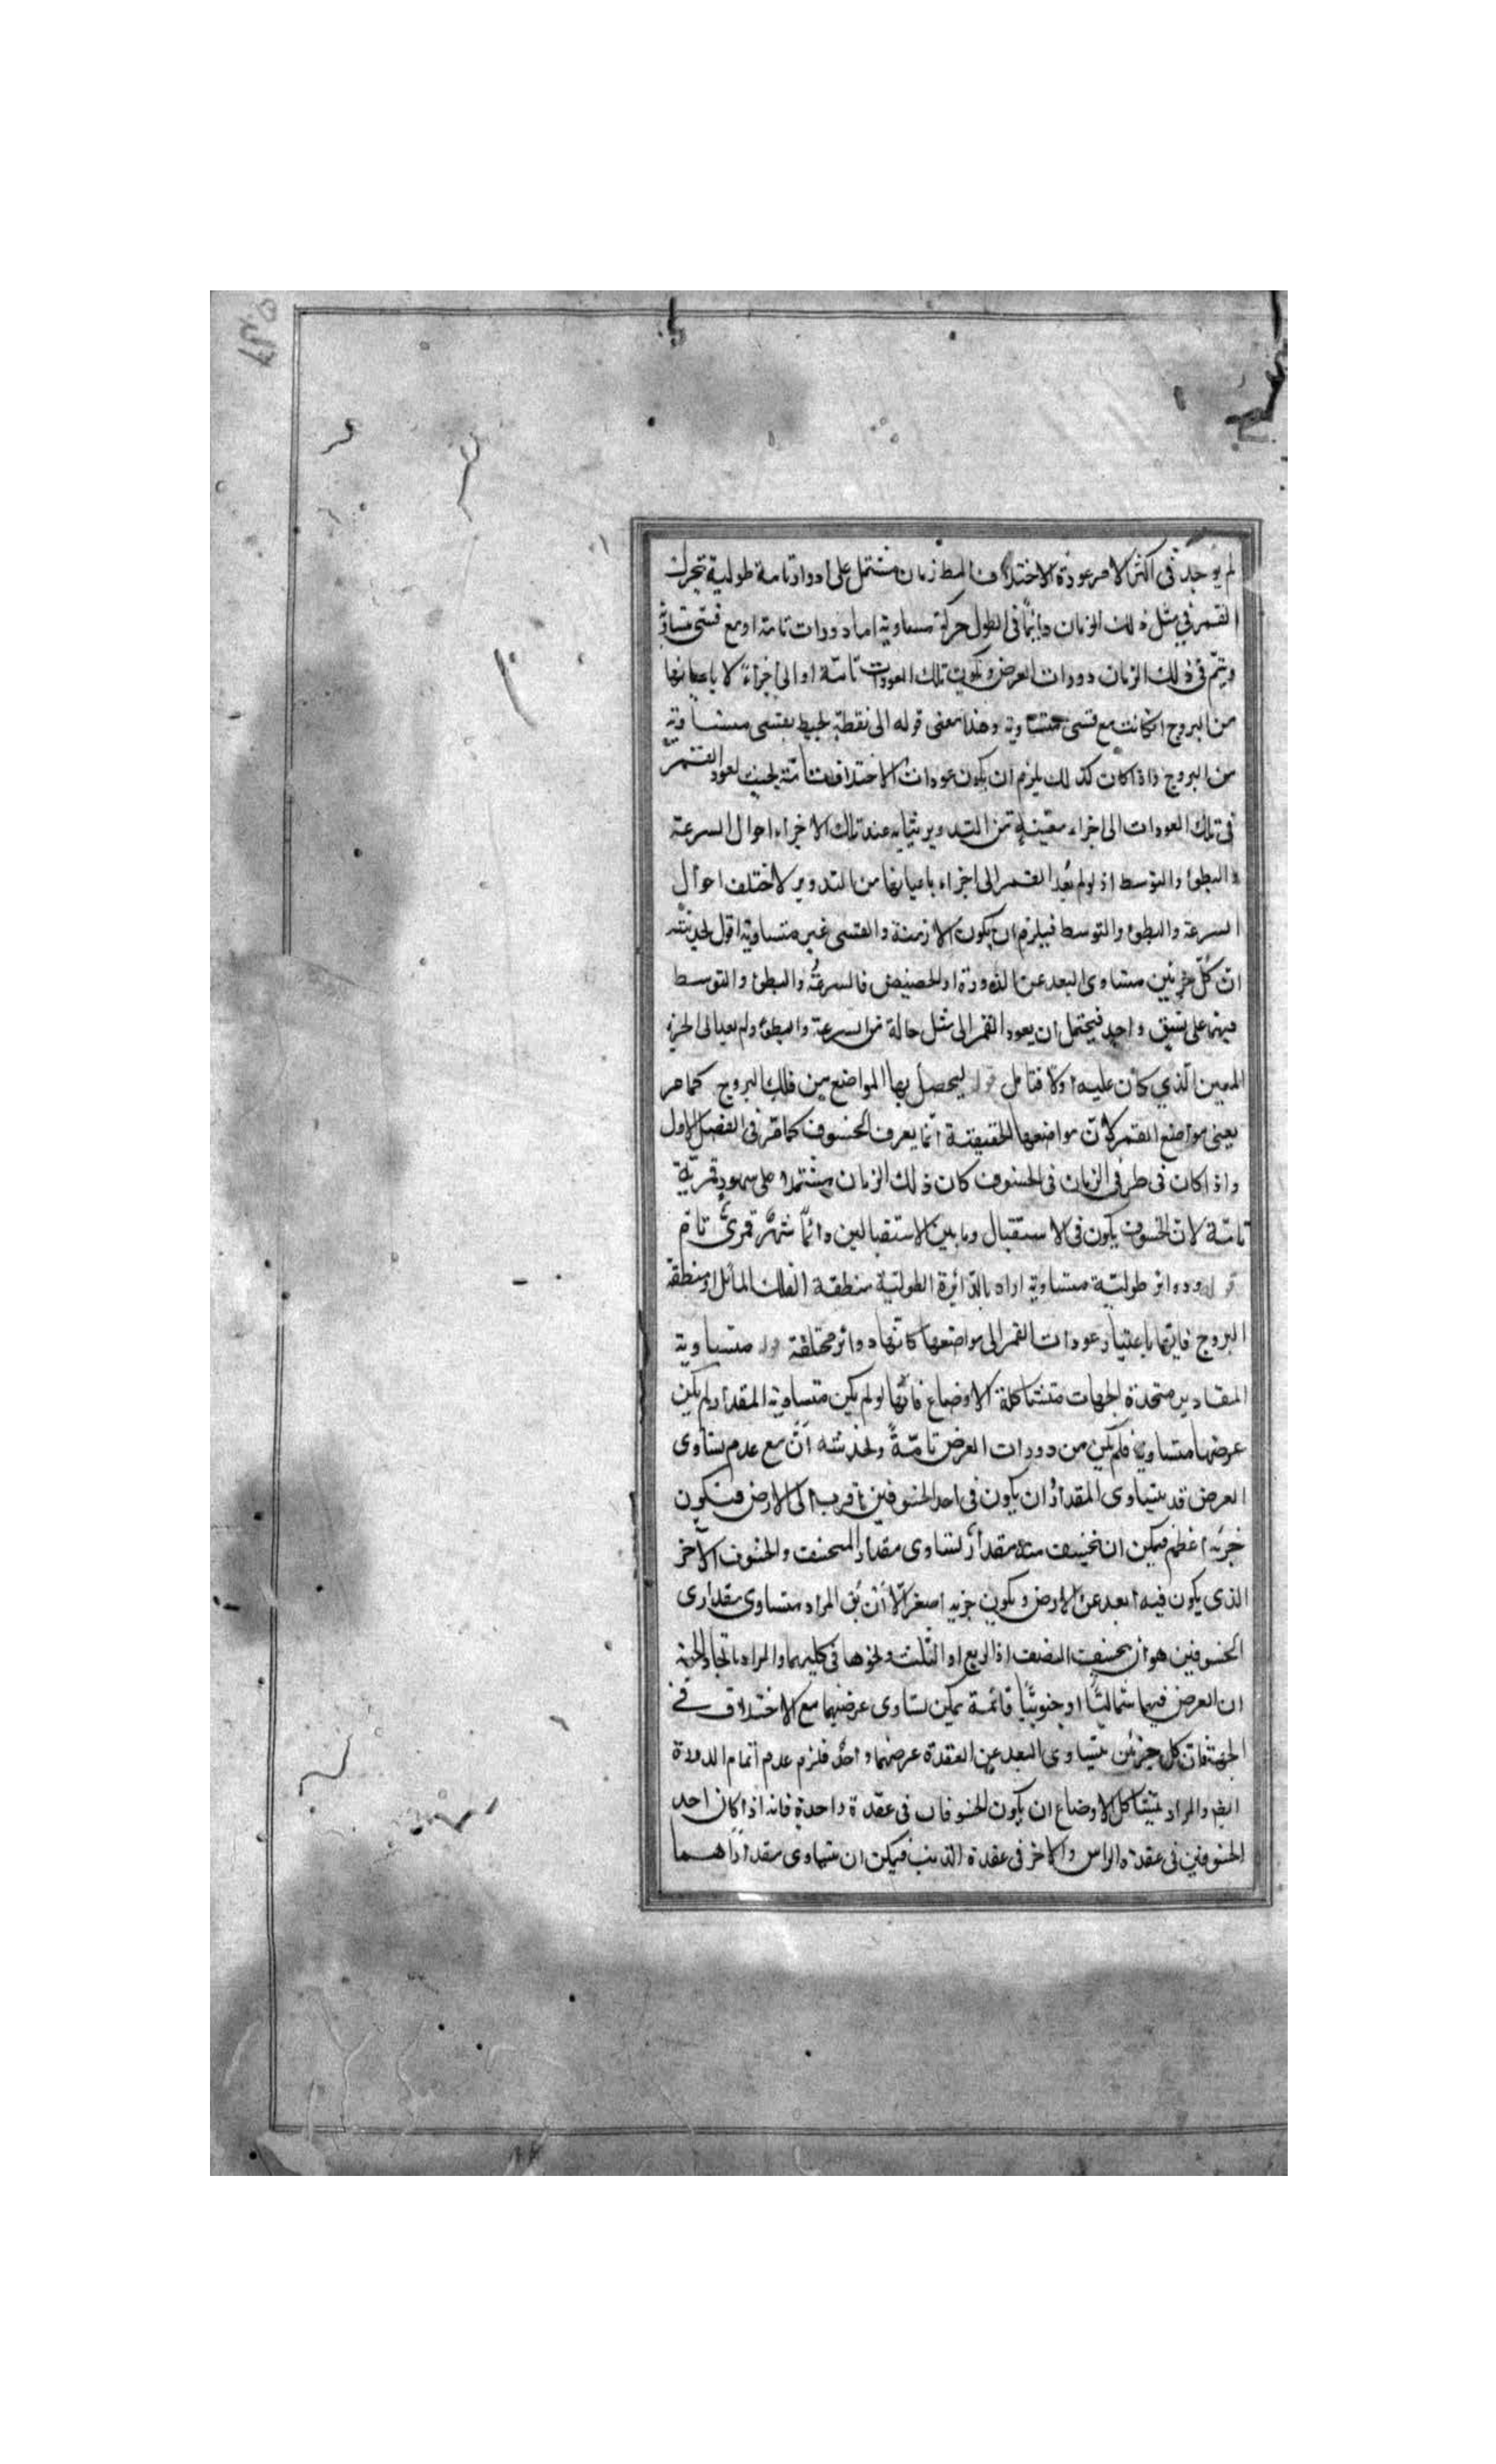 لم يوجد فى اكثر الامر عودة الاختلاف فالمط زمان مشتمل على ادوار تامة طولية تحرك
القمر فى مثل ذلك الزمان دايما فى الطول حركة مساوية اما دورات تامة او مع قسى متساوية
ويتم فى ذلك الزمان دورات العرض ويكون تلك العودات تامة او الى اجزاء لا باعيانها
من البروج اذ كانت مع قسى متساوية وهذا معنى قوله الى نقطة تحيط بقسى متساوية
من البروج واذا كان كذلك يلزم ان يكون عودات الاختلاف تامة بحيث يعود القمر
فى تلك العودات الى اجزاء معينة من التدوير يتشابه عند تلك الاجزاء احوال السرعة
والبطؤ والتوسط اذ لو لم يعد القمر الى اجزاء باعيانها من التدوير لاختلف احوال
السرعة والبطؤ والتوسط فيلزم ان يكون الازمنة والقسى غير متساوية اقول لخديشته
ان كل جزئين متساوى البعد عن الذروة او الحضيض فالسرعة والبطؤ والتوسط
فيهما على نسق واحد فيحتمل ان يعود القمر الى مثل حالة من السرعة والبطؤ ولم يعد الى الجزء
المعين الذي كان عليه اولا فتامل قوله ليحصل بها المواضع من فلك البروج كما مر
يعنى مواضع القمر لان مواضعها الحقيقية انما يعرف الخسوف كما مر فى الفصل الاول
واذا كان فى طرفى الزمان فى الخسوف كان ذلك الزمان مشتملا على شهور قمرية
تامة لان الخسوف يكون فى الاستقبال وما بين الاستقبالين دائما شهر قمرى تام
قوله ودوائر طولية متساوية اراد بالدائرة الطولية منطقة الفلك المائل او منطقة
البروج فانها باعتبار عودات القمر الى مواضعها كانها دوائر مختلفة قوله متساوية
المقادير متحدة الجهات متشاكلة الاوضاع فانها لو لم يكن متساوية المقدار لم يكن
عرضها متساوية فلم يكن من دورات العرض تامة ولخدشته ان مع عدم تساوى
العرض قد يتساوى المقدار ان يكون فى احد الخسوفين اقرب الى الارض فيكون
جزئه اعظم فيمكن ان ينخسف منه مقدار يساوى مقدار المنخسف والخسوف الآخر
الذى يكون فيه ابعد عن الارض ويكون جزيه اصغر الا ان يق المراد متساوى مقدارى
الخسوفين هو ان ينخسف النصف او الربع او الثلث ونحوها فى كليهما والمراد باتحاد الجهة
ان العرض فيهما شماليا او جنوبيا فانه يمكن تساوى عرضيهما مع الاختلاف فى
الجهة فان كل جزئين متساوى البعد عن العقدة عرضهما واحد فلزم عدم اتمام الدورة
ايضا والمراد بتشاكل الاوضاع ان يكون الخسوفان فى عقدة واحدة فانه اذا كان احد
الخسوفين فى عقدة الراس والآخر فى عقدة الذنب فيمكن ان يتساوى مقداراهما